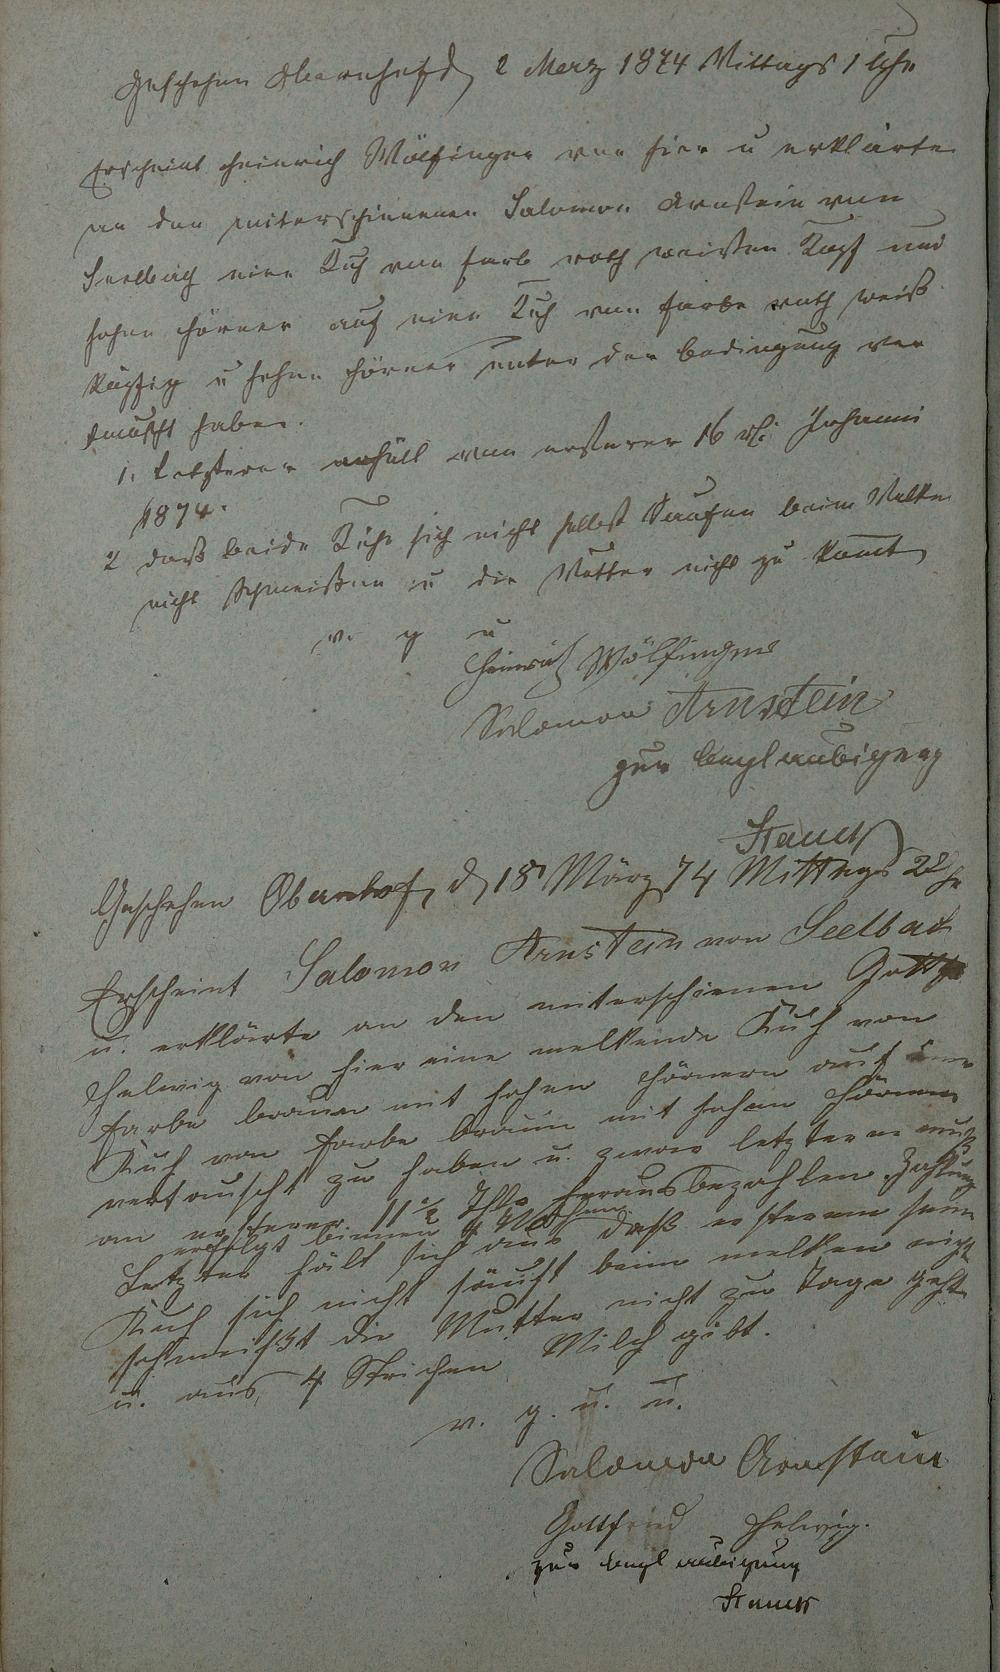 Geschehen Obernhof d 2 Merz 1874 Mittags 1 Uhr
Erscheint Heinrich Wölfinger von hier u erklärte
an den miterschienenen Salomon Arnstein von
Seelbach eine Kuh von farb roth weißen Kopf und
hohen Hörner auf eine Kuh von farbe roth weiß
köpfig u hohen Hörner unter der bedingung ver
tauscht haben.
1. Letzterer erhält von ersterer 16 rh. Johanni
1874.
2 daß beide Kühe sich nicht selbst Saufen beim Melken
nicht Schmeißen u die Mutter nicht zu kommt
v. g u
Heinrich Wölfinger
Salomon Arnstein
zur beglaubigung
Stauch
Geschehen Obernhof, d 18 März 74 Mittags 2 Uhr
Erscheint Salomon Arnstein von Seelbach
u. erklärte an den miterschienen Gottfr
Helwig von hier eine melkende Kuh von
farbe braun mit hohen Hörnern auf eine
Kuh von farbe braun mit hohen Hörnern
vertauscht zu haben u. zwar letzterer muß
an ersterer 11 1/2 Thlr herausbezahlen. Zahlung
erfolgt binnen 4 Wochen.
Letzter hält sich aus daß ersterem seine
Kuh sich nicht säuft beim melken nicht
schmeißt die Mutter nicht zu Tage geht
u. aus 4 Strichen Milch gibt.
v. g. u. u.
Salomon Arnstein
Gottfried Helwig.
zur beglaubigung
Stauch